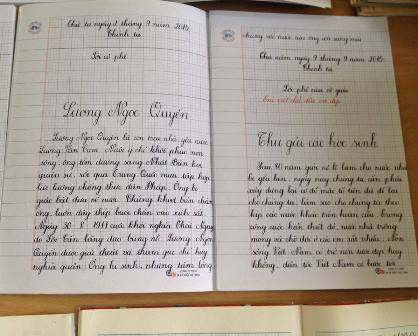 Thứ tư ngày 2 tháng 9 năm 2015
Chính tả
Lời cô phê
Lương Ngọc Quyến
Lương Ngọc Quyến là con trai nhà yêu nước
Lương Văn Can. Nuôi ý chí khôi phục non
sông, ông tìm đường sang Nhật Bản học
quân sự, rồi qua Trung Quốc mưu tập hợp
lực lượng chống thực dân Pháp. Ông bị
giặc bắt đưa về nước. Chúng khoét bàn chân
ông, luồn dây thép buộc chân vào xích sắt.
Ngày 30 - 8 - 1917 cuộc khởi nghĩa Thái Nguyên
do Đội Cấn lãnh đạo bùng nổ. Lương Ngọc
Quyến được giải thoát và tham gia chỉ huy
nghĩa quân. Ông hi sinh, nhưng tấm lòng
trung với nước của ông còn sáng mãi.
Thứ năm ngày 9 tháng 9 năm 2015
Chính tả
Lời phê của cô giáo
Em viết chữ đều và đẹp
Thư gửi các học sinh
Sau 80 năm giời nô lệ làm cho nước nhà
bị yếu hèn, ngày nay chúng ta cần phải
xây dựng lại cơ đồ mà tổ tiên đã để lại
cho chúng ta, làm sao cho chúng ta theo
kịp các nước khác trên hoàn cầu. Trong
công cuộc kiến thiết đó, nước nhà trông
mong và chờ đợi ở các em rất nhiều. Non
sông Việt Nam có trở nên tươi đẹp hay
không, dân tộc Việt Nam có bước tới